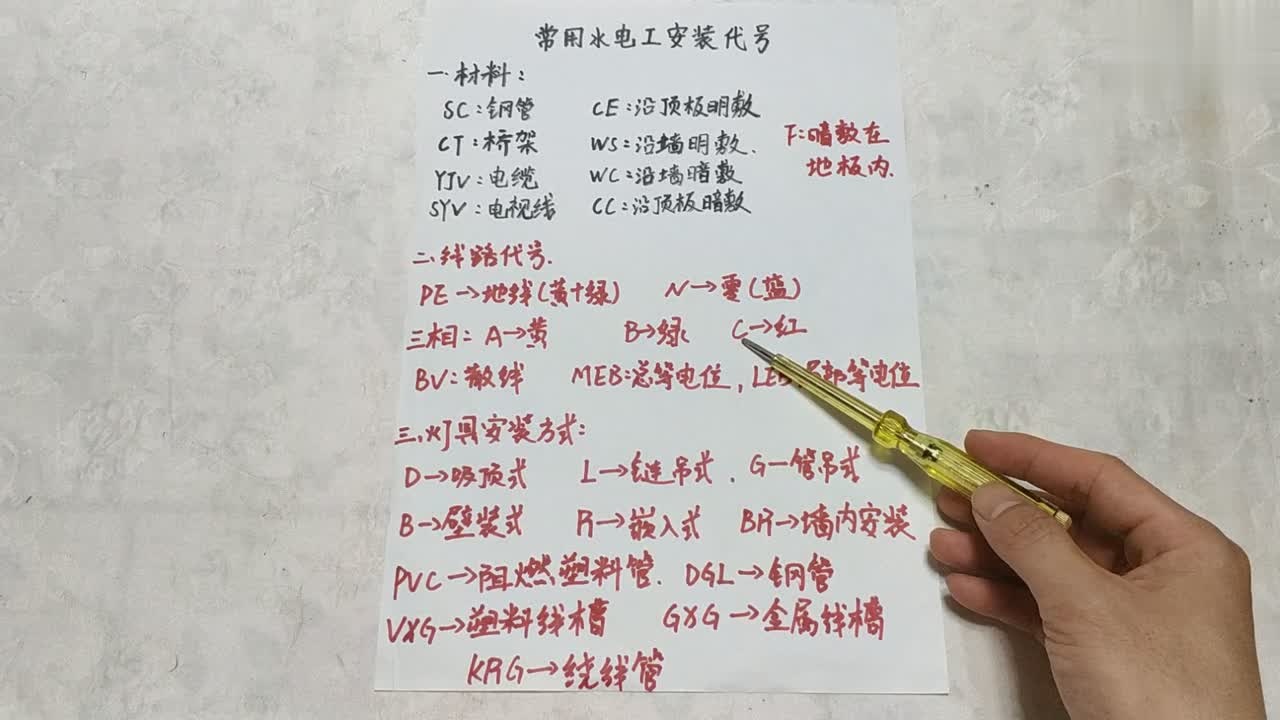 常用水电工安装代号
一.材料:
SC:钢管 CE:沿顶板明敷
CT:桥架 WS:沿墙明敷.
YJV:电缆 WC:沿墙暗敷
SYV:电视线 CC:沿顶板暗敷
F:暗敷在
地板内.
二.线路代号.
PE→地线(黄+绿) N→零(蓝)
三相:A→黄 B→绿 C→红
BV:散线 MEB:总等电位,LEB:局部等电位
三.灯具安装方式:
D→吸顶式 L→链吊式. G—管吊式
B→壁装式 R→嵌入式 BR→墙内安装
PVC→阻燃塑料管. DGL→钢管
VXG→塑料线槽 GXG→金属线槽
KRG→绕线管